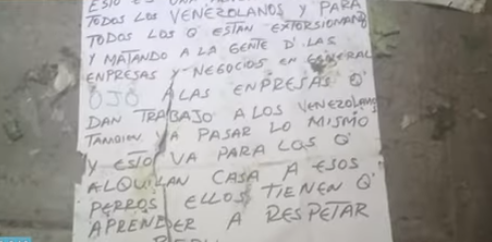 ESTO ES UNA
TODOS LOS VENEZOLANOS Y PARA
TODOS LOS Q' ESTAN EXTORSIONANDO
Y MATANDO A LA GENTE D' LAS
ENPRESAS Y NEGOCIOS EN GENERAL
OJO A LAS ENPRESAS Q'
DAN TRABAJO A LOS VENEZOLANOS
TAMBIEN VA PASAR LO MISMO
Y ESTO VA PARA LOS Q'
ALQUILAN CASA A ESOS
PERROS ELLOS TIENEN Q'
APRENDER A RESPETAR